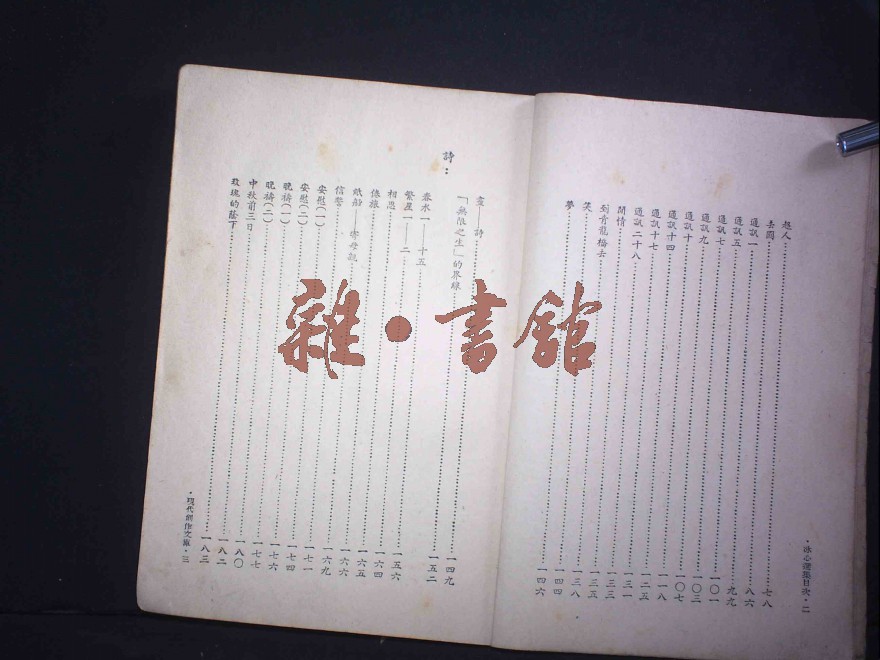 超人……七八
去國……八六
通訊一……九九
通訊五……一〇一
通訊七……一〇三
通訊九……一〇七
通訊十……一一八
通訊十四……一二五
通訊十七……一三一
通訊二十八……一三三
閒情……一三五
到青龍橋去……一三八
笑……一四四
夢……一四六
・冰心選集目次・二
詩：
畫——詩……一四九
「無限之生」的界線……一五二
春水一——十五……一五六
繁星一——二……一六四
相思……一六五
倦旅……一六六
紙船——寄母親……一六九
信誓……一七一
安慰(一)……一七四
安慰(二)……一七六
晚禱(一)……一七七
晚禱(二)……一八〇
中秋前三日……一八二
玫瑰的蔭下……一八三
・現代創作文庫・三
雜・書館